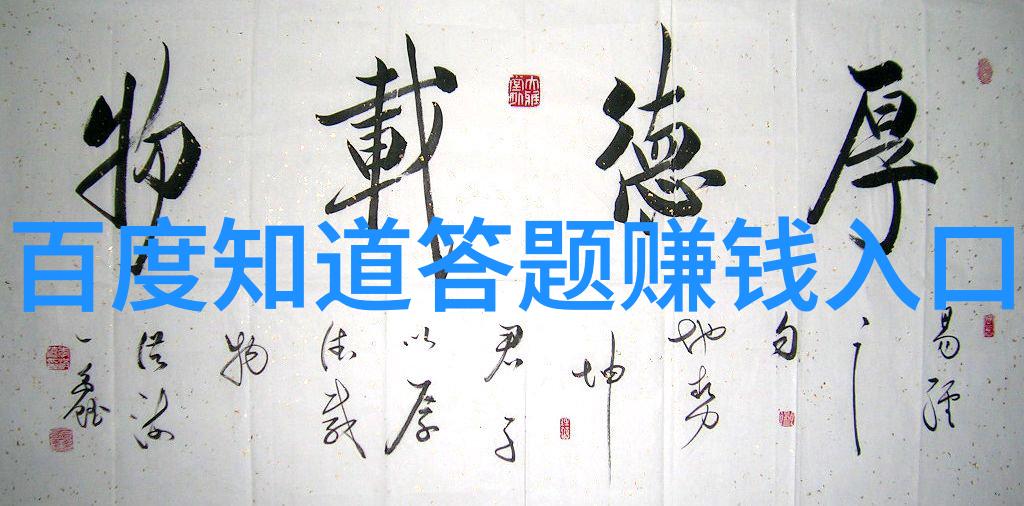 厚德載物
百度知道答题赚钱入口
易經
之
句
地勢
坤
君子
以厚
德載
物